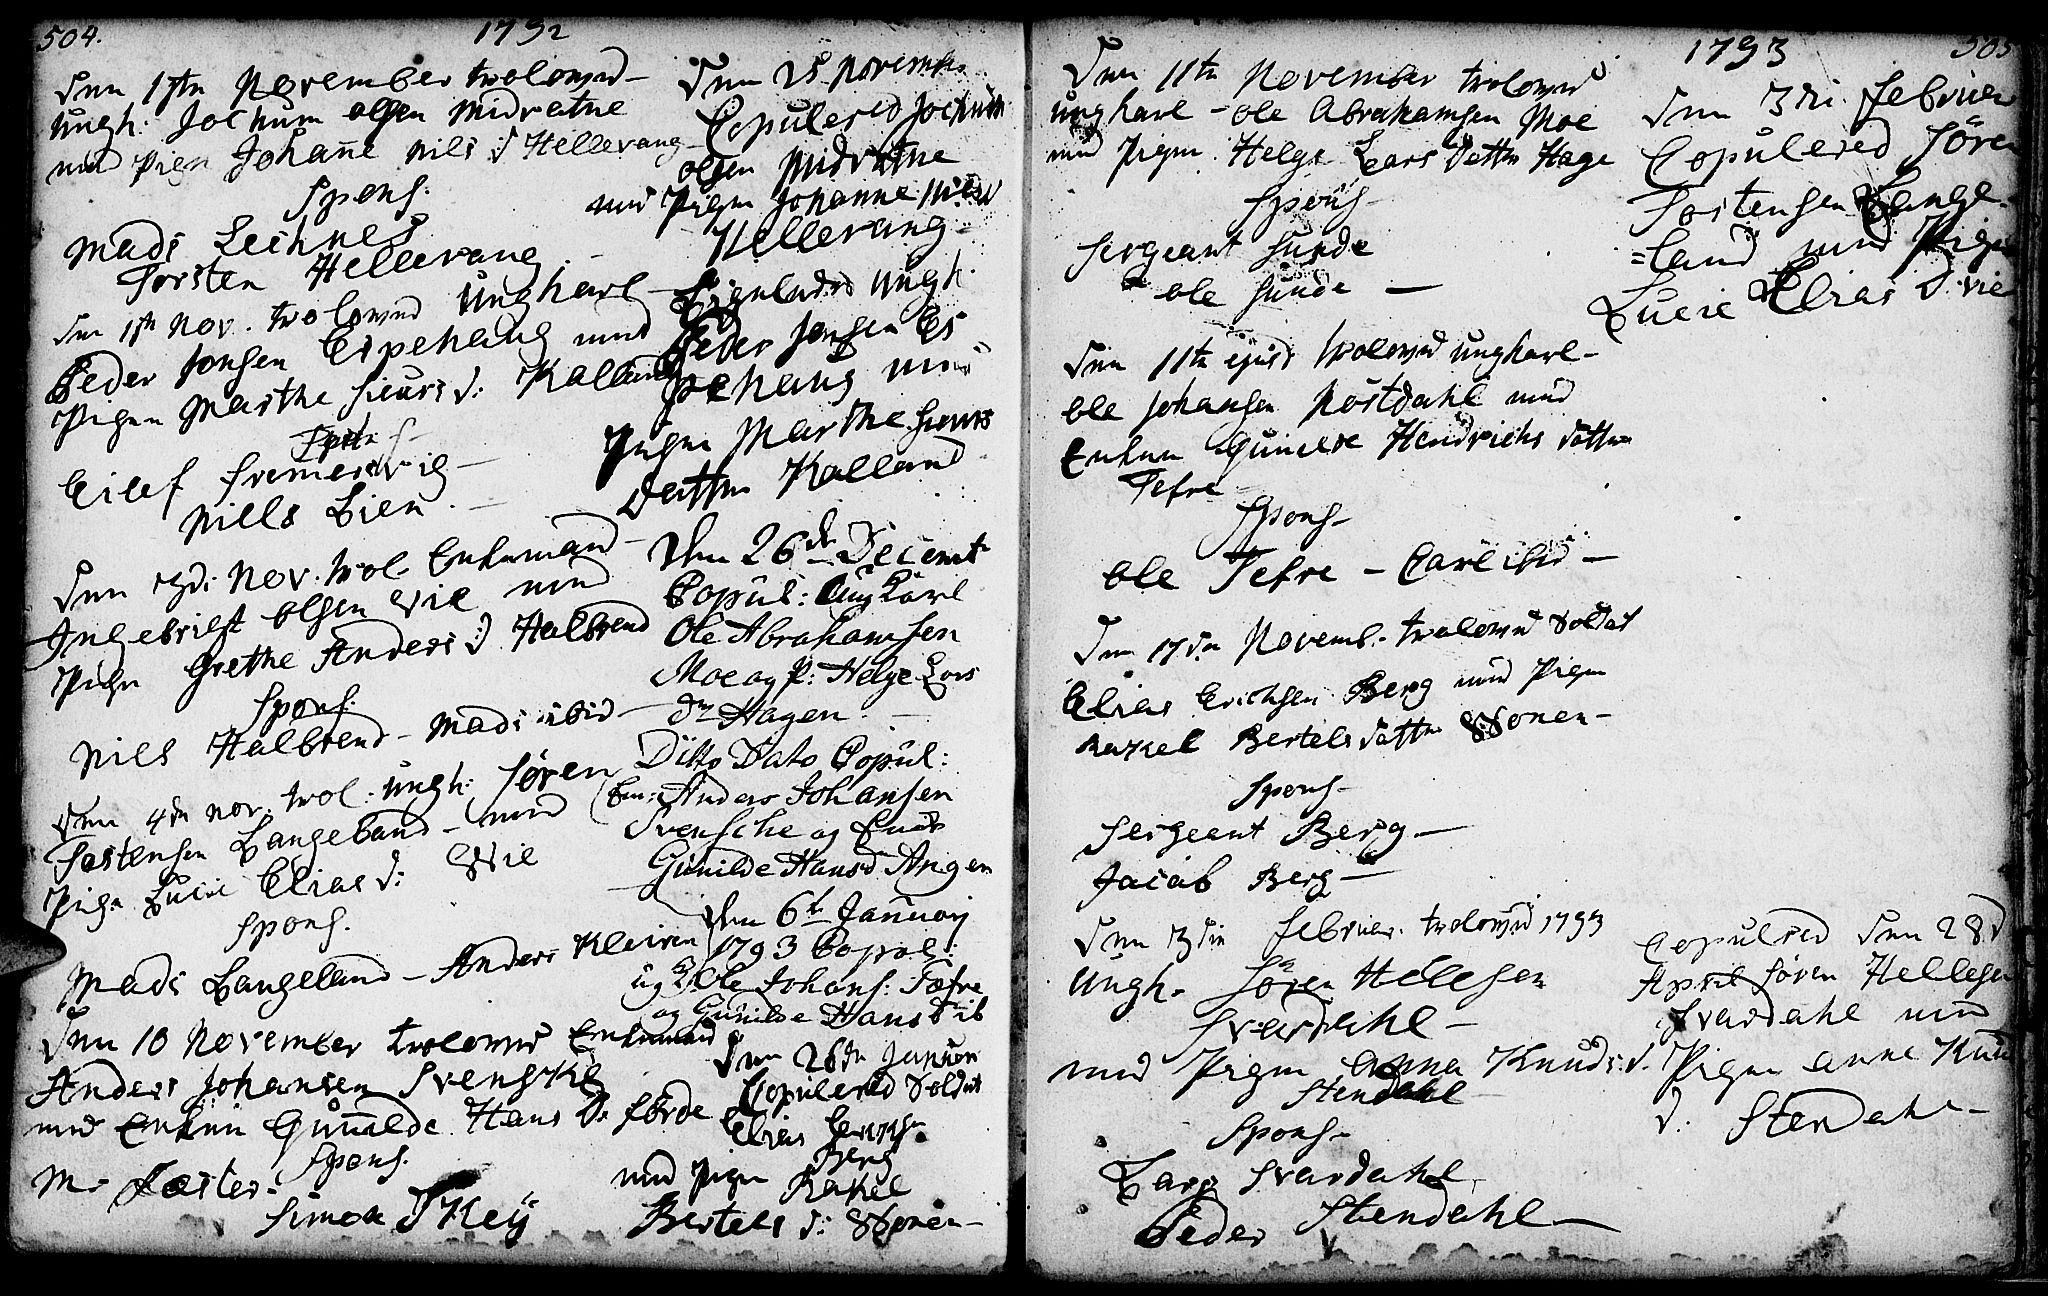 504.
1792
Den 1ste November trolowed
ungk: Jochum olsen Midvetne
med Pigen Johañe Nils :d Hellevang
Spons.
Mads Leshnes
Torsten Hellevang
Den 1ste Nov. trolowed ungkarl
Peder Jonsen Espehaug med
Pigen Marthe Siurs d: Kalland
Spons
Eilef
Niels Lien
Den 3di Nov. trol. Enkemand
Ingebrigt olsen Vie med
Pigen Grethe Anders :d Halbrend
Spons.
Nils Halbrend - Mads ibid
Den 4de Nov. trol: ungk: Søren
Tostensen Langeland - med
Pign Lucie Elias d: Vie
Spons.
Mads Langeland - Anders Kleiven
Den 10 November trolowed Enkemand
Anders Johansen Svenske
med Enken Guñilde Hans D. førde
Spons.
M.
Simon Skey
Den 25 November
Copulered Jochum
olsen Midvetne
med Pigen Johanne Nils d
Hellevang
Ligeledes ungk.
Peder Jonsen Es
pehaug med
Pigen Marthe Siurs
Datter Kalland
Den 26de Decemb
Copul: Ung Karl
Ole Abrahamsen
Moe og P: Helge Lars
dr Hagen.
Ditto Dato Copul:
Em: Anders Johansen
Svensche og Enke
Gunilde Hansd Angen
Den 6te Januarj
1793 Copol:
ug K Ole Johans: Tæfre
og Gunilde Hans d ib
Den 26de Januari
Copulered Soldat
Elias Erichs.
Berg
med Pigen Rakel
Bertels d: Wonen -
505
1793
Den 11te November trolowed
ungkarl - ole Abrahamsen Moe
med Pigen Helge Lars Datter Hage
Spons
Sergeant Sunde
ole Sunde -
Den 11te ejusd trolowed ungkarl -
ole Johansen Nostdahl med
Enken Gunilde Hendrichs datter
Tefre
Spons -
ole Tefre - Carl ibid -
Den 17de Novemb. trolowed Soldat
Elias Erichsen Berg med Pigen
Rakel Bertels datter Wonen -
Spons -
Sergeant Berg -
Jacob Berg -
Den 3die februar. trolowed 1793
Ungk. Søren Hellesen
Svardahl -
med Pigen Anna Knuds: d.
Stendahl -
Spons -
Lars Svardahl
Peder Stendahl -
Den 3di. februar
Copulered Søren
Tostensen Lange-
=land med Pigen
Lucie Elias D. Vie
Copulered den 28d
April Søren Hellesen
Svardahl med
Pigen Anne Knu
d. Stendahl -